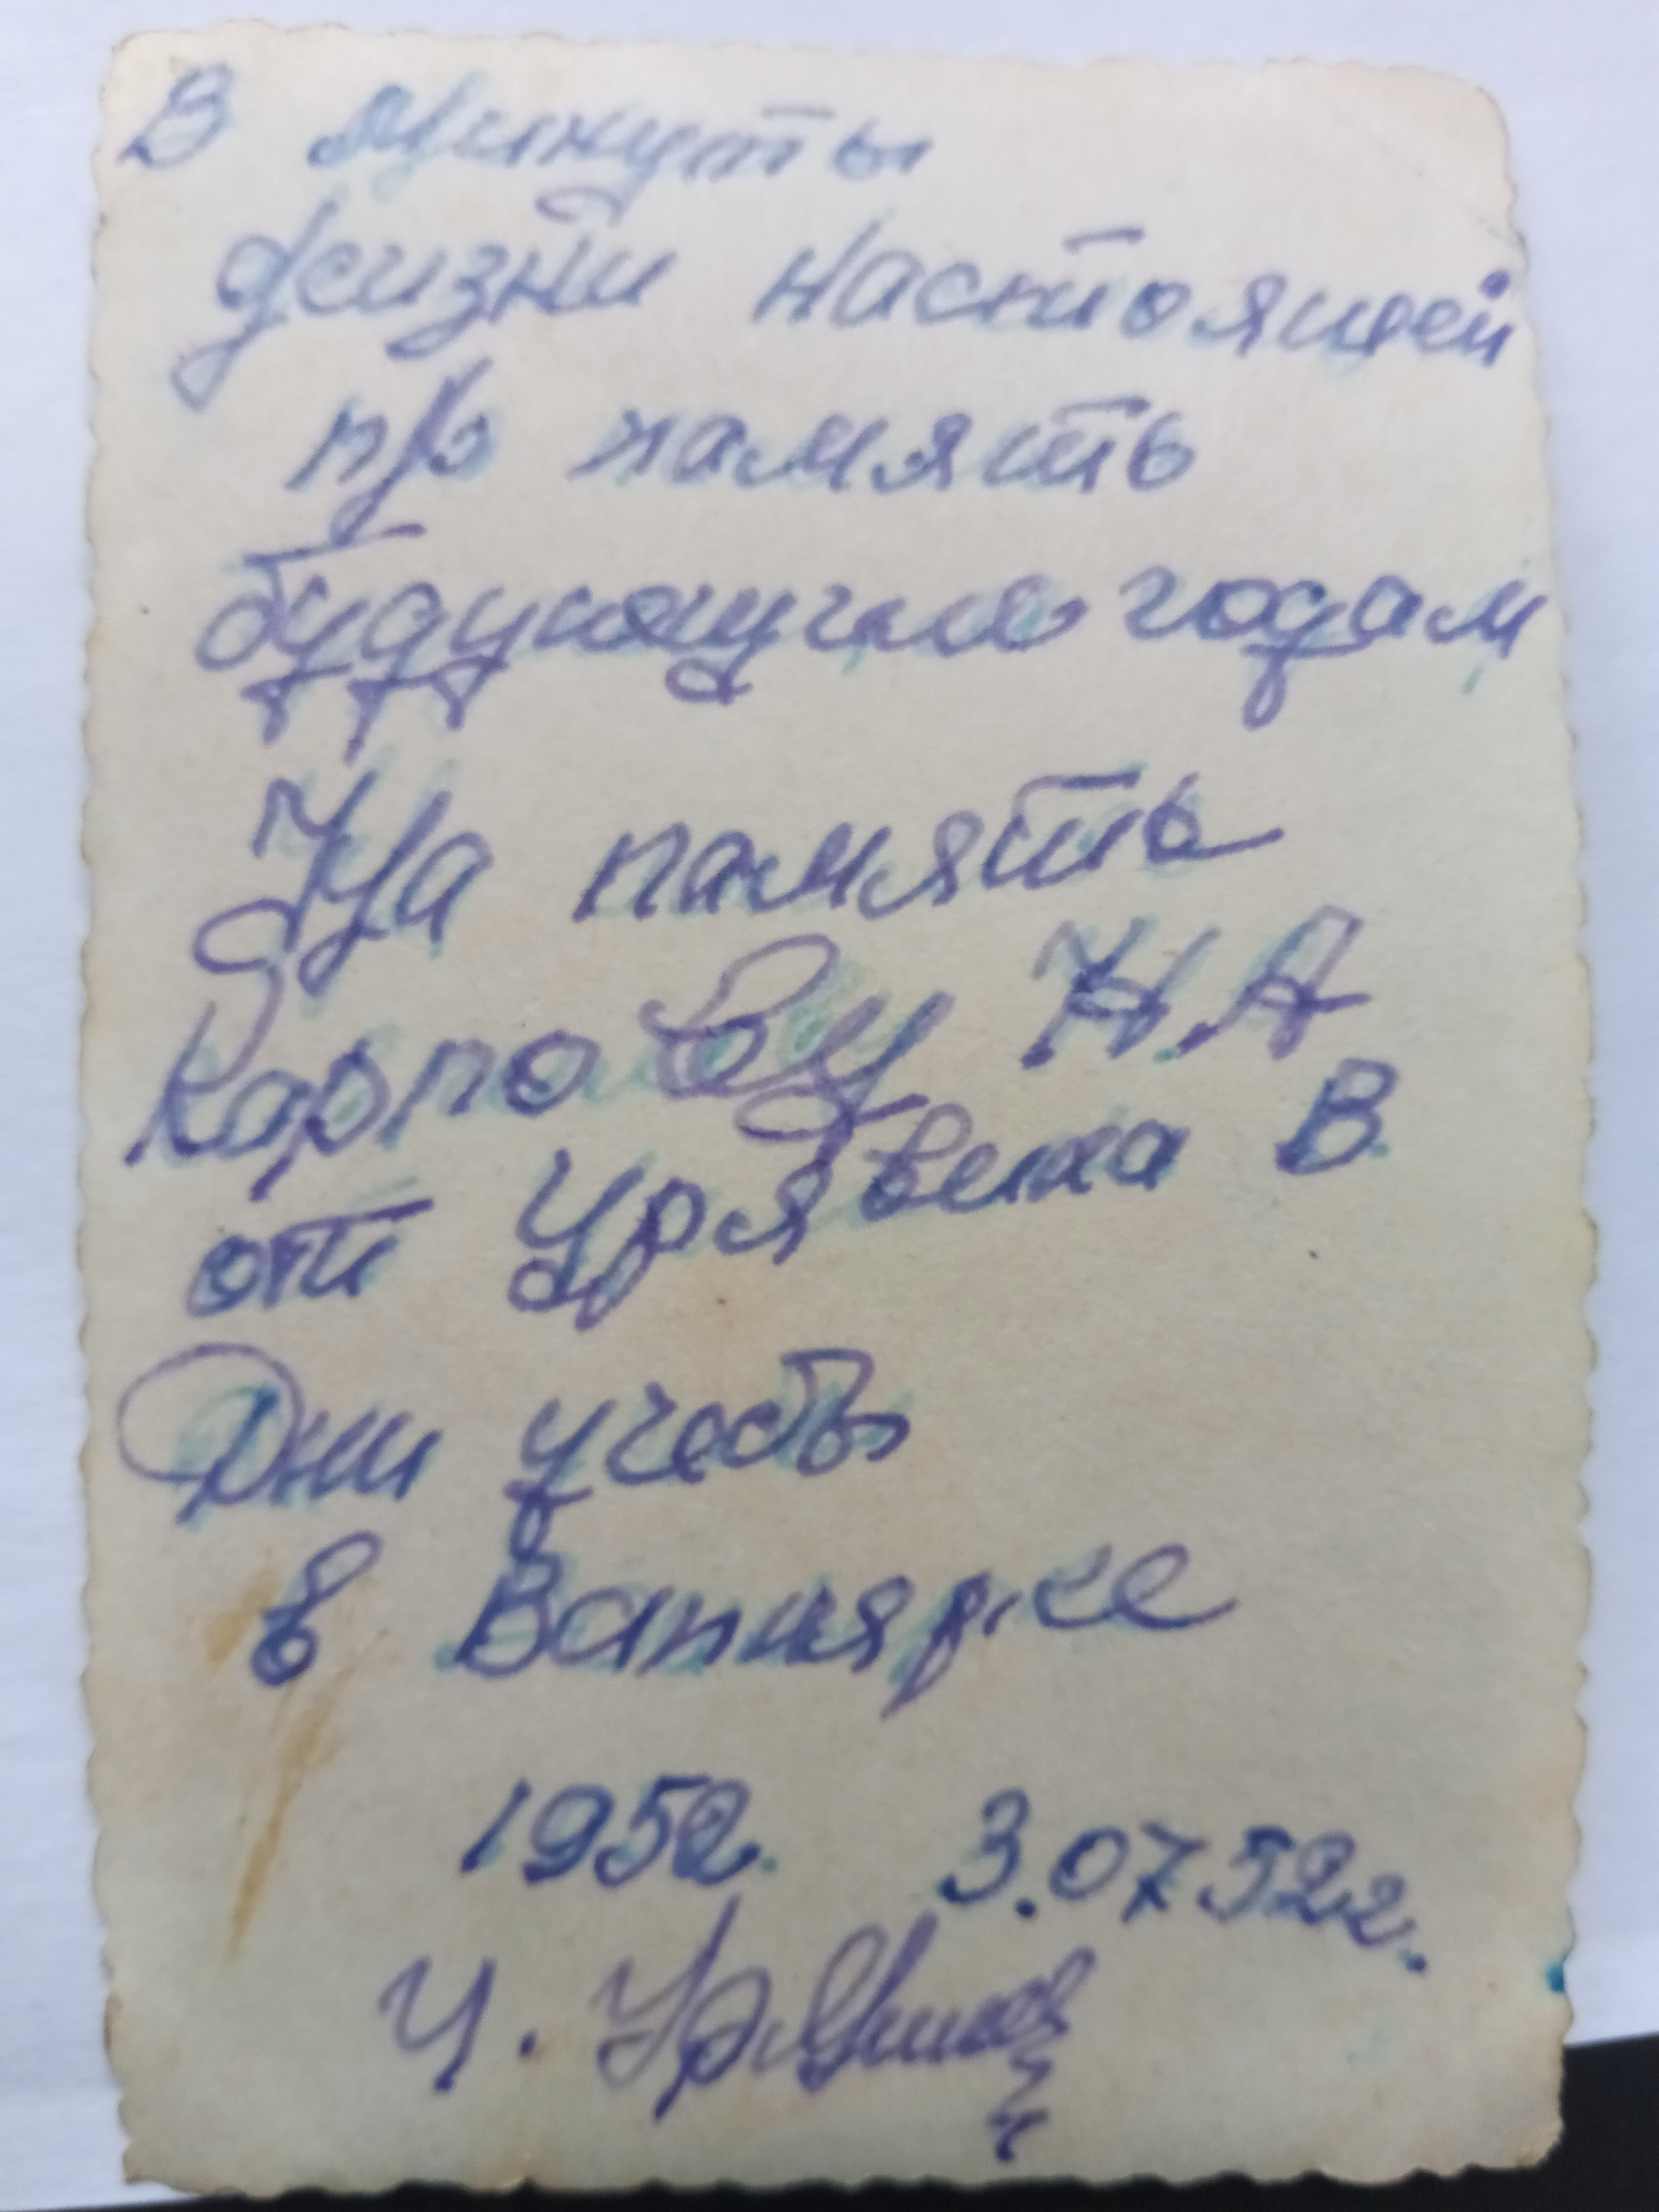 В минуты
жизни настоящей
про память
будующим годам
На память
Карпову Н.А
от Урявина В.
Дни учебы
в Вапнярке
1952. 3.07 52г.